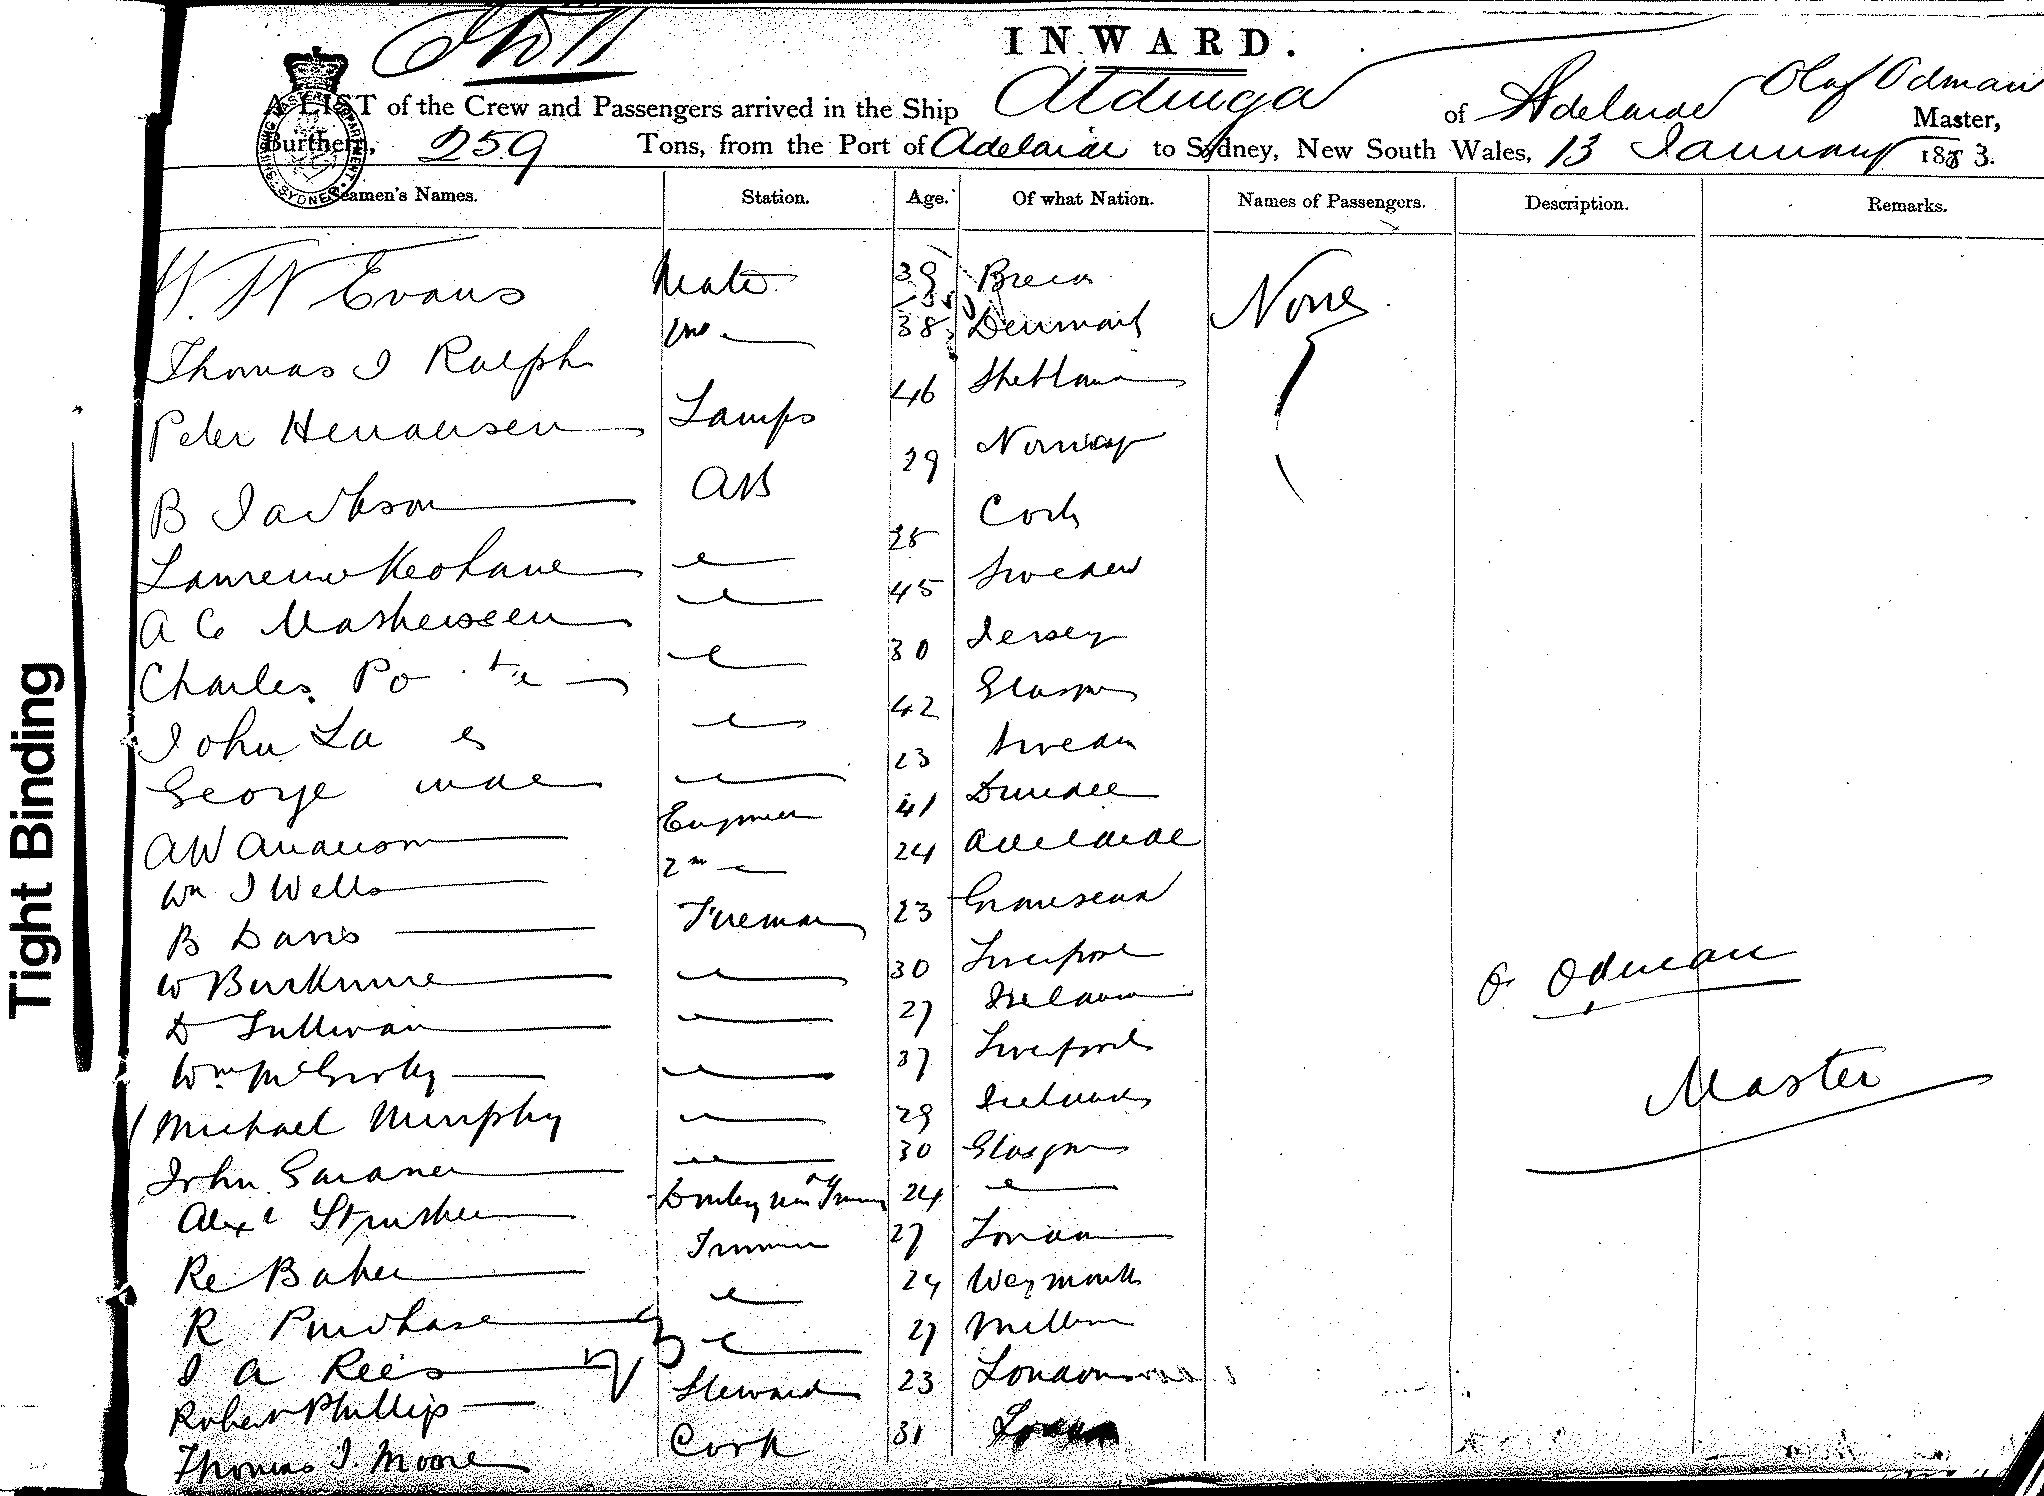 INWARD.
A LIST of the Crew and Passengers arrived in the Ship Aldinga of Adelaide Olaf Odman Master,
Burthern, 259 Tons, from the Port of Adelaide to Sydney, New South Wales, 13 January 1883.
Seamen's Names. Station. Age. Of what Nation. Names of Passengers. Description. Remarks.
W. W Evans Mate 39 None
Thomas J Ralph 38 Denmark
Peter Hermansen Lamps 46 Shetland
B Jackson AB 29 Norway
Lawrence Keohane 28 Cork
A C 45 Sweden
Charles 30 Jersey
John 42 Glasgow
George 23 Sweden
AW Anderson Engineer 41 Dundee
Wm J Wells 2nd 24 Adelaide
B Davis Fireman 23 Gravesend
W 30 Liverpool
D Sullivan 27 Ireland
Wm 37 Liverpool
Michael Murphy 29 Ireland
John Gardner 30 Glasgow
Alexr 24
Re Baker Trimmer 27 London
R Purchase 24 Weymouth
J A Rees 27
Robert Phillips Steward 23 London
Thomas J. Moore Cook 31
O. Odman
Master
Tight Binding